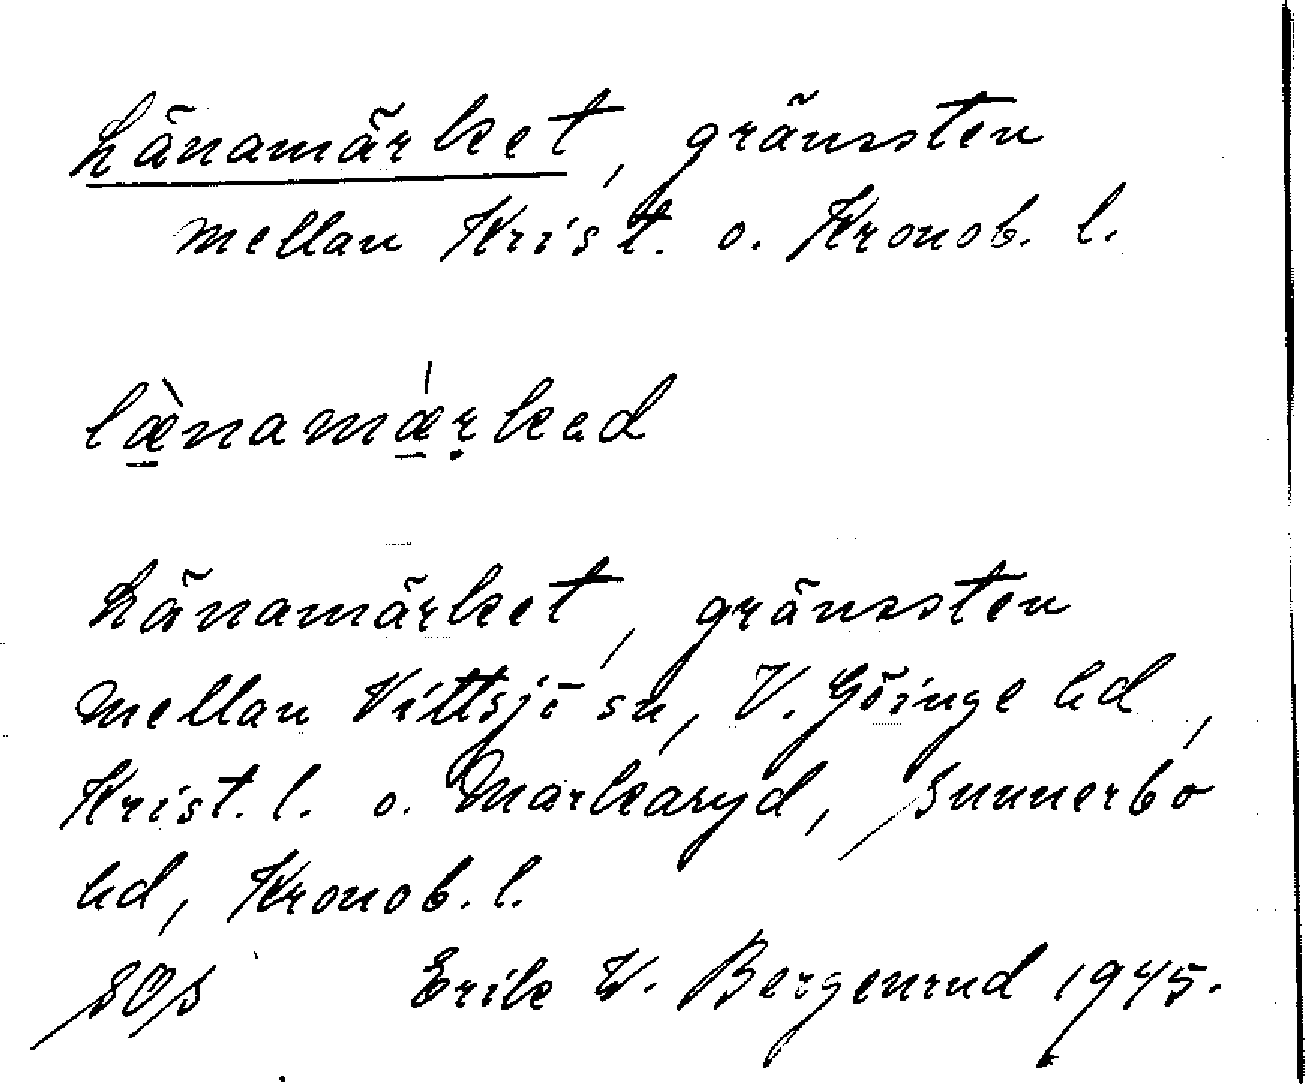 Länamärket, gränssten
mellan Krist. o. Kronob. l.
læ̀namǽrkad
Länamärket, gränssten
mellan Vittsjö sn, V. Göinge hd,
Krist. l. o. Markaryd, Sunnerbo
hd, Kronob. l.
SOs Erik W. Bergenrud 1945.